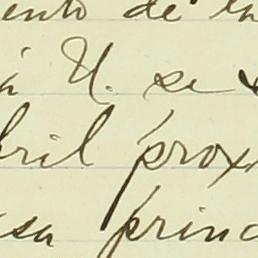 ento de
á U. se
bril prox
sa princ